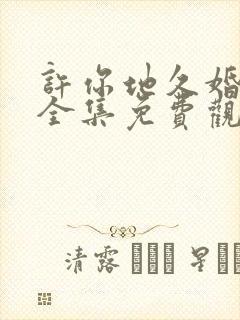 許你地久婚
全集免費觀
清露 星